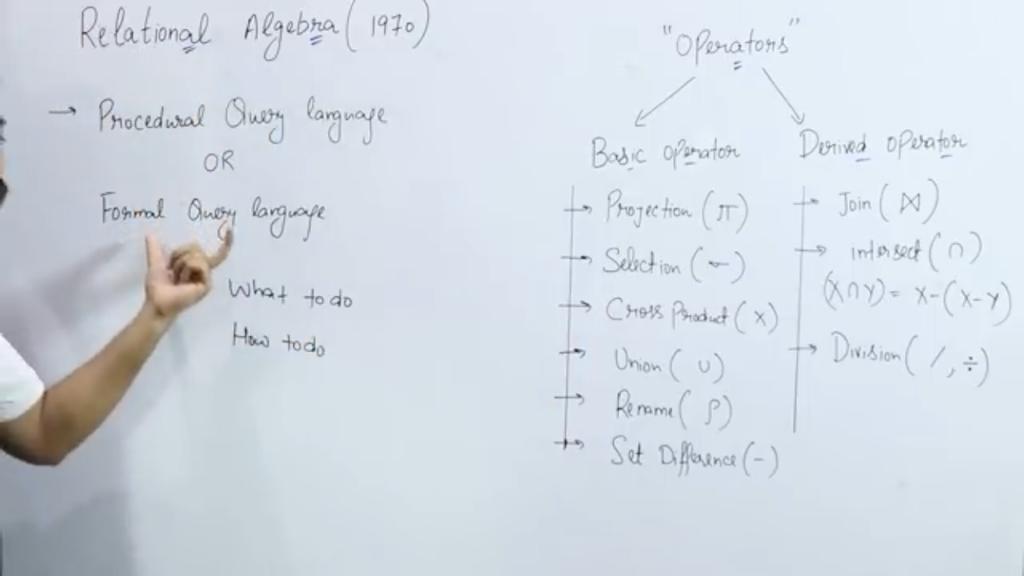 Relational Algebra (1970)
→ Procedural Query language
OR
Formal Query language
What to do
How to do
"Operators"
Basic operator
→ Projection (π)
→ Selection (σ)
→ Cross Product (X)
→ Union (∪)
→ Rename (ρ)
→ Set Difference (-)
Derived operator
→ Join (⋈)
→ intersect (∩)
(X∩Y) = X-(X-Y)
→ Division (/, ÷)